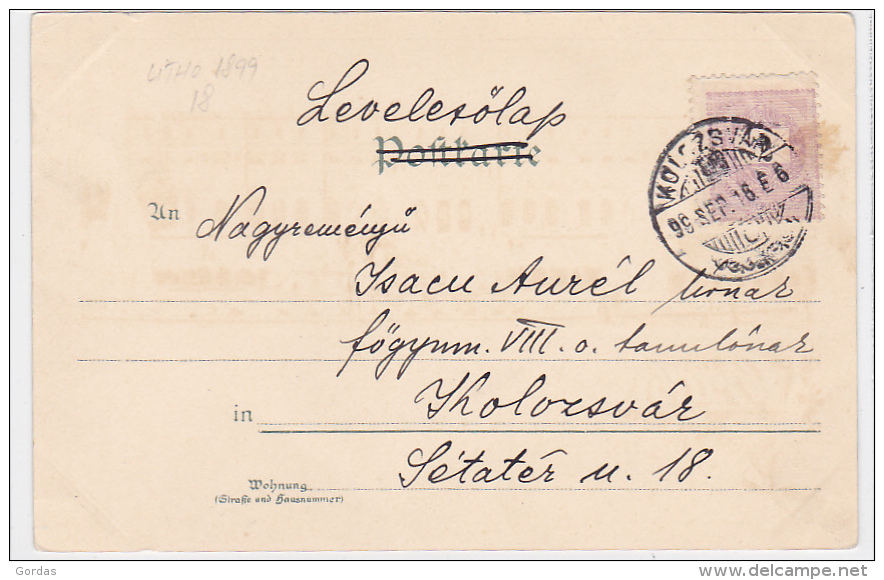 LITHO 1899
18
Levelezőlap
Postkarte
An
Nagyreményű
Isacu Aurél úrnak
főgymn. VIII. o. tanulónak
in Kolozsvár
Sétatér u. 18.
Wohnung
(Straße und Hausnummer)
KOLOZSVÁR
99 SEP. 16 E 6
Gordas
delcampe.net